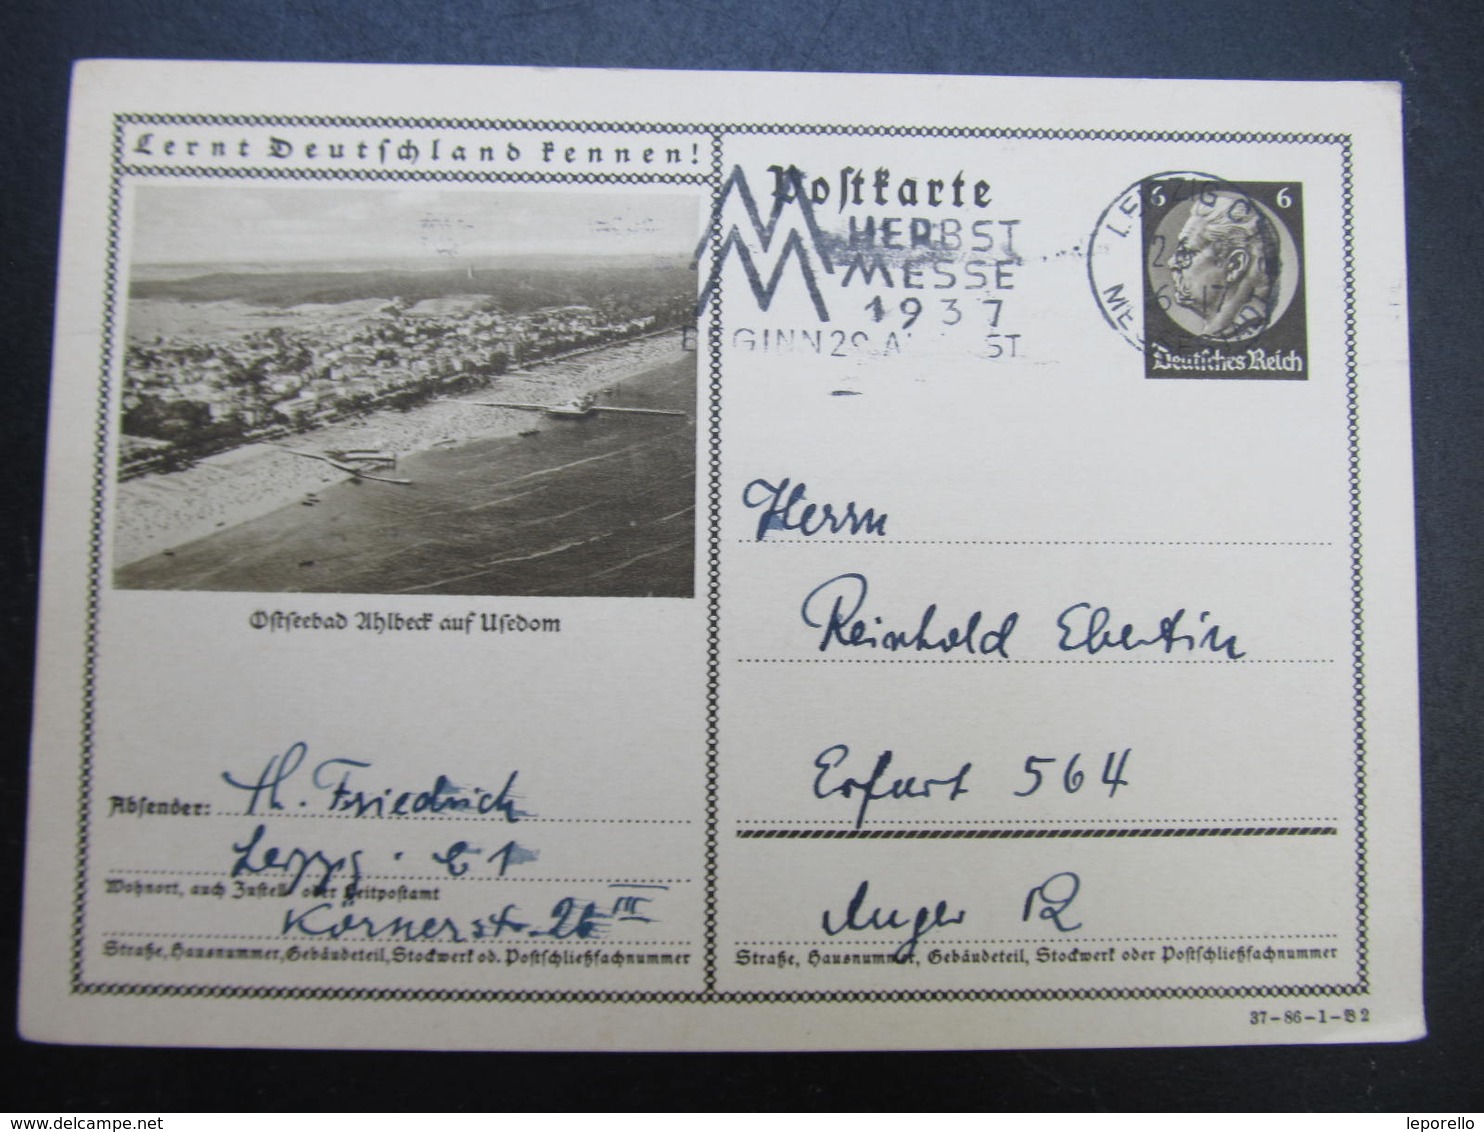 Lernt Deutschland kennen!
Postkarte
HERBST
MESSE
1937
BEGINN 29. A ST
LEIPZIG C
6 6
Deutsches Reich
Ostseebad Ahlbeck auf Usedom
Herrn
Reinhold Ebertin
Erfurt 564
Anger
Straße, Hausnummer, Gebäudeteil, Stockwerk oder Postschließfachnummer
Absender: Th. Friedrich
Leipzig C 1
Wohnort, auch Zustell- oder Leitpostamt
Körnerstr. 26 III
Straße, Hausnummer, Gebäudeteil, Stockwerk od. Postschließfachnummer
37-86-1-B 2
delcampe.net
leporello